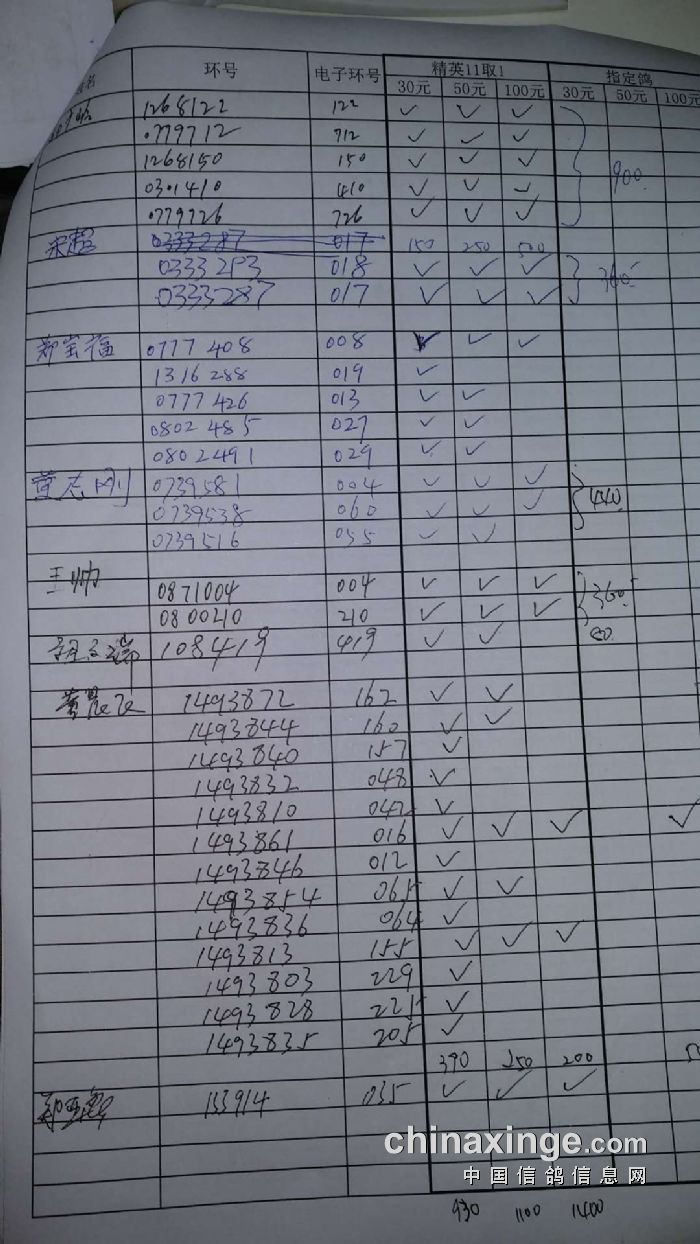 名 环号 电子环号 精英11取1 指定鸽
30元 50元 100元 30元 50元 100元
1268122 122 ✓ ✓ ✓
0779712 712 ✓ ✓ ✓
1268150 150 ✓ ✓ ✓ 900
0301410 410 ✓ ✓ ✓
0779726 726 ✓ ✓ ✓
宋超 0333287 017 150 250 500
0333293 018 ✓ ✓ ✓ 360
0333287 017 ✓ ✓ ✓
郑宝福 0777408 008 ✓ ✓ ✓
1316288 019 ✓
0777426 013 ✓ ✓
0802485 027 ✓ ✓
0802491 029 ✓ ✓
董志刚 0739581 004 ✓ ✓ ✓
0739538 060 ✓ ✓ ✓ 440
0739516 055 ✓ ✓
王帅 0871004 004 ✓ ✓ ✓ 360
0800210 210 ✓ ✓ ✓
108419 419 ✓ ✓ 80
黄晨飞 1493872 162 ✓ ✓
1493844 160 ✓ ✓
1493840 157 ✓
1493832 048 ✓
1493810 042 ✓
1493861 016 ✓ ✓ ✓ ✓
1493846 012 ✓
1493854 065 ✓ ✓
1493836 064 ✓
1493813 155 ✓ ✓ ✓
1493803 229 ✓
1493828 225 ✓
1493835 205 ✓
390 250 200
133914 035 ✓ ✓ ✓
chinaxinge.com
中国信鸽信息网
930 1100 1400